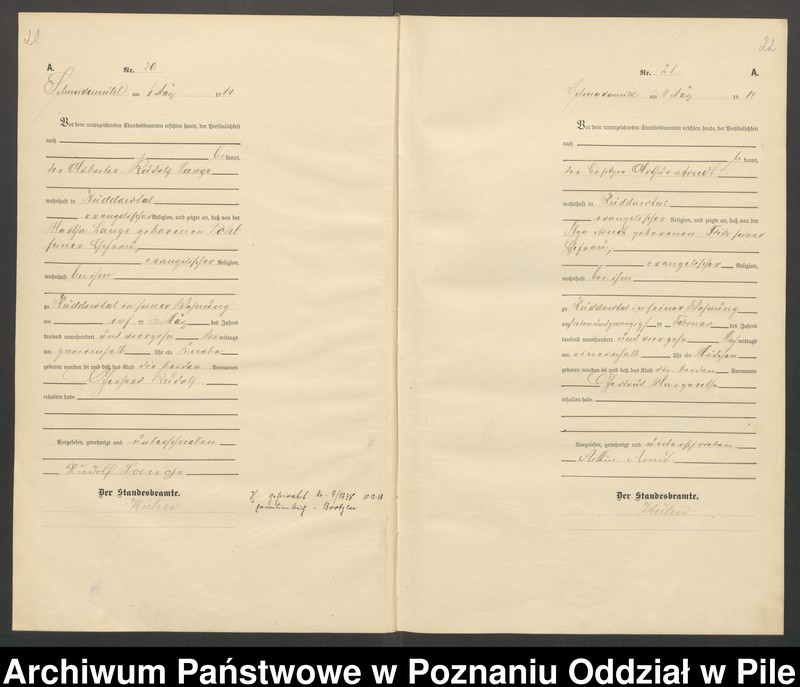 21
A.
Nr. 20
Schneidemühl am 6 März 1914
Vor dem unterzeichneten Standesbeamten erschien heute, der Persönlichkeit
nach
be kannt,
der Arbeiter Rudolf Lange
wohnhaft in Küddowtal
evangelischer Religion, und zeigte an, daß von der
Lange geborenen
seiner Ehefrau,
evangelischer Religion,
wohnhaft bei ihm
zu Küddowtal in seiner Wohnung
am März des Jahres
tausend neunhundert und vierzehn mittags
um zweieinhalb Uhr ein Knabe
geboren worden sei und daß das Kind die beiden Vornamen
Gerhard Rudolf
erhalten habe
Vorgelesen, genehmigt und unterschrieben
Rudolf Lange
Der Standesbeamte.
geheiratet Nr. 9/1938 10.12.38
22
Nr. 21
A.
Schneidemühl am März 1914
Vor dem unterzeichneten Standesbeamten erschien heute, der Persönlichkeit
nach
be kannt,
der Besitzer Arthur Arndt
wohnhaft in Küddowtal
evangelischer Religion, und zeigte an, daß von der
Arndt geborenen seiner
Ehefrau,
evangelischer Religion,
wohnhaft bei ihm
zu Küddowtal in seiner Wohnung
am siebenundzwanzigsten Februar des Jahres
tausend neunhundert und vierzehn mittags
um eineinhalb Uhr ein Mädchen
geboren worden sei und daß das Kind die beiden Vornamen
Gertrud Margarethe
erhalten habe
Vorgelesen, genehmigt und unterschrieben
Arthur Arndt
Der Standesbeamte.
Archiwum Państwowe w Poznaniu Oddział w Pile